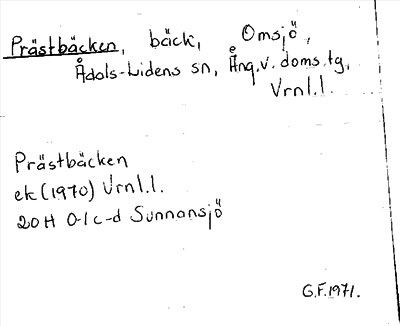 Prästbäcken, bäck, Omsjö,
Ådals-Lidens sn, Ång.v. doms.tg,
Vrnl.l.
Prästbäcken
ek (1970) Vrnl.l.
20H 0-1 c-d Sunnansjö
G.F. 1971.